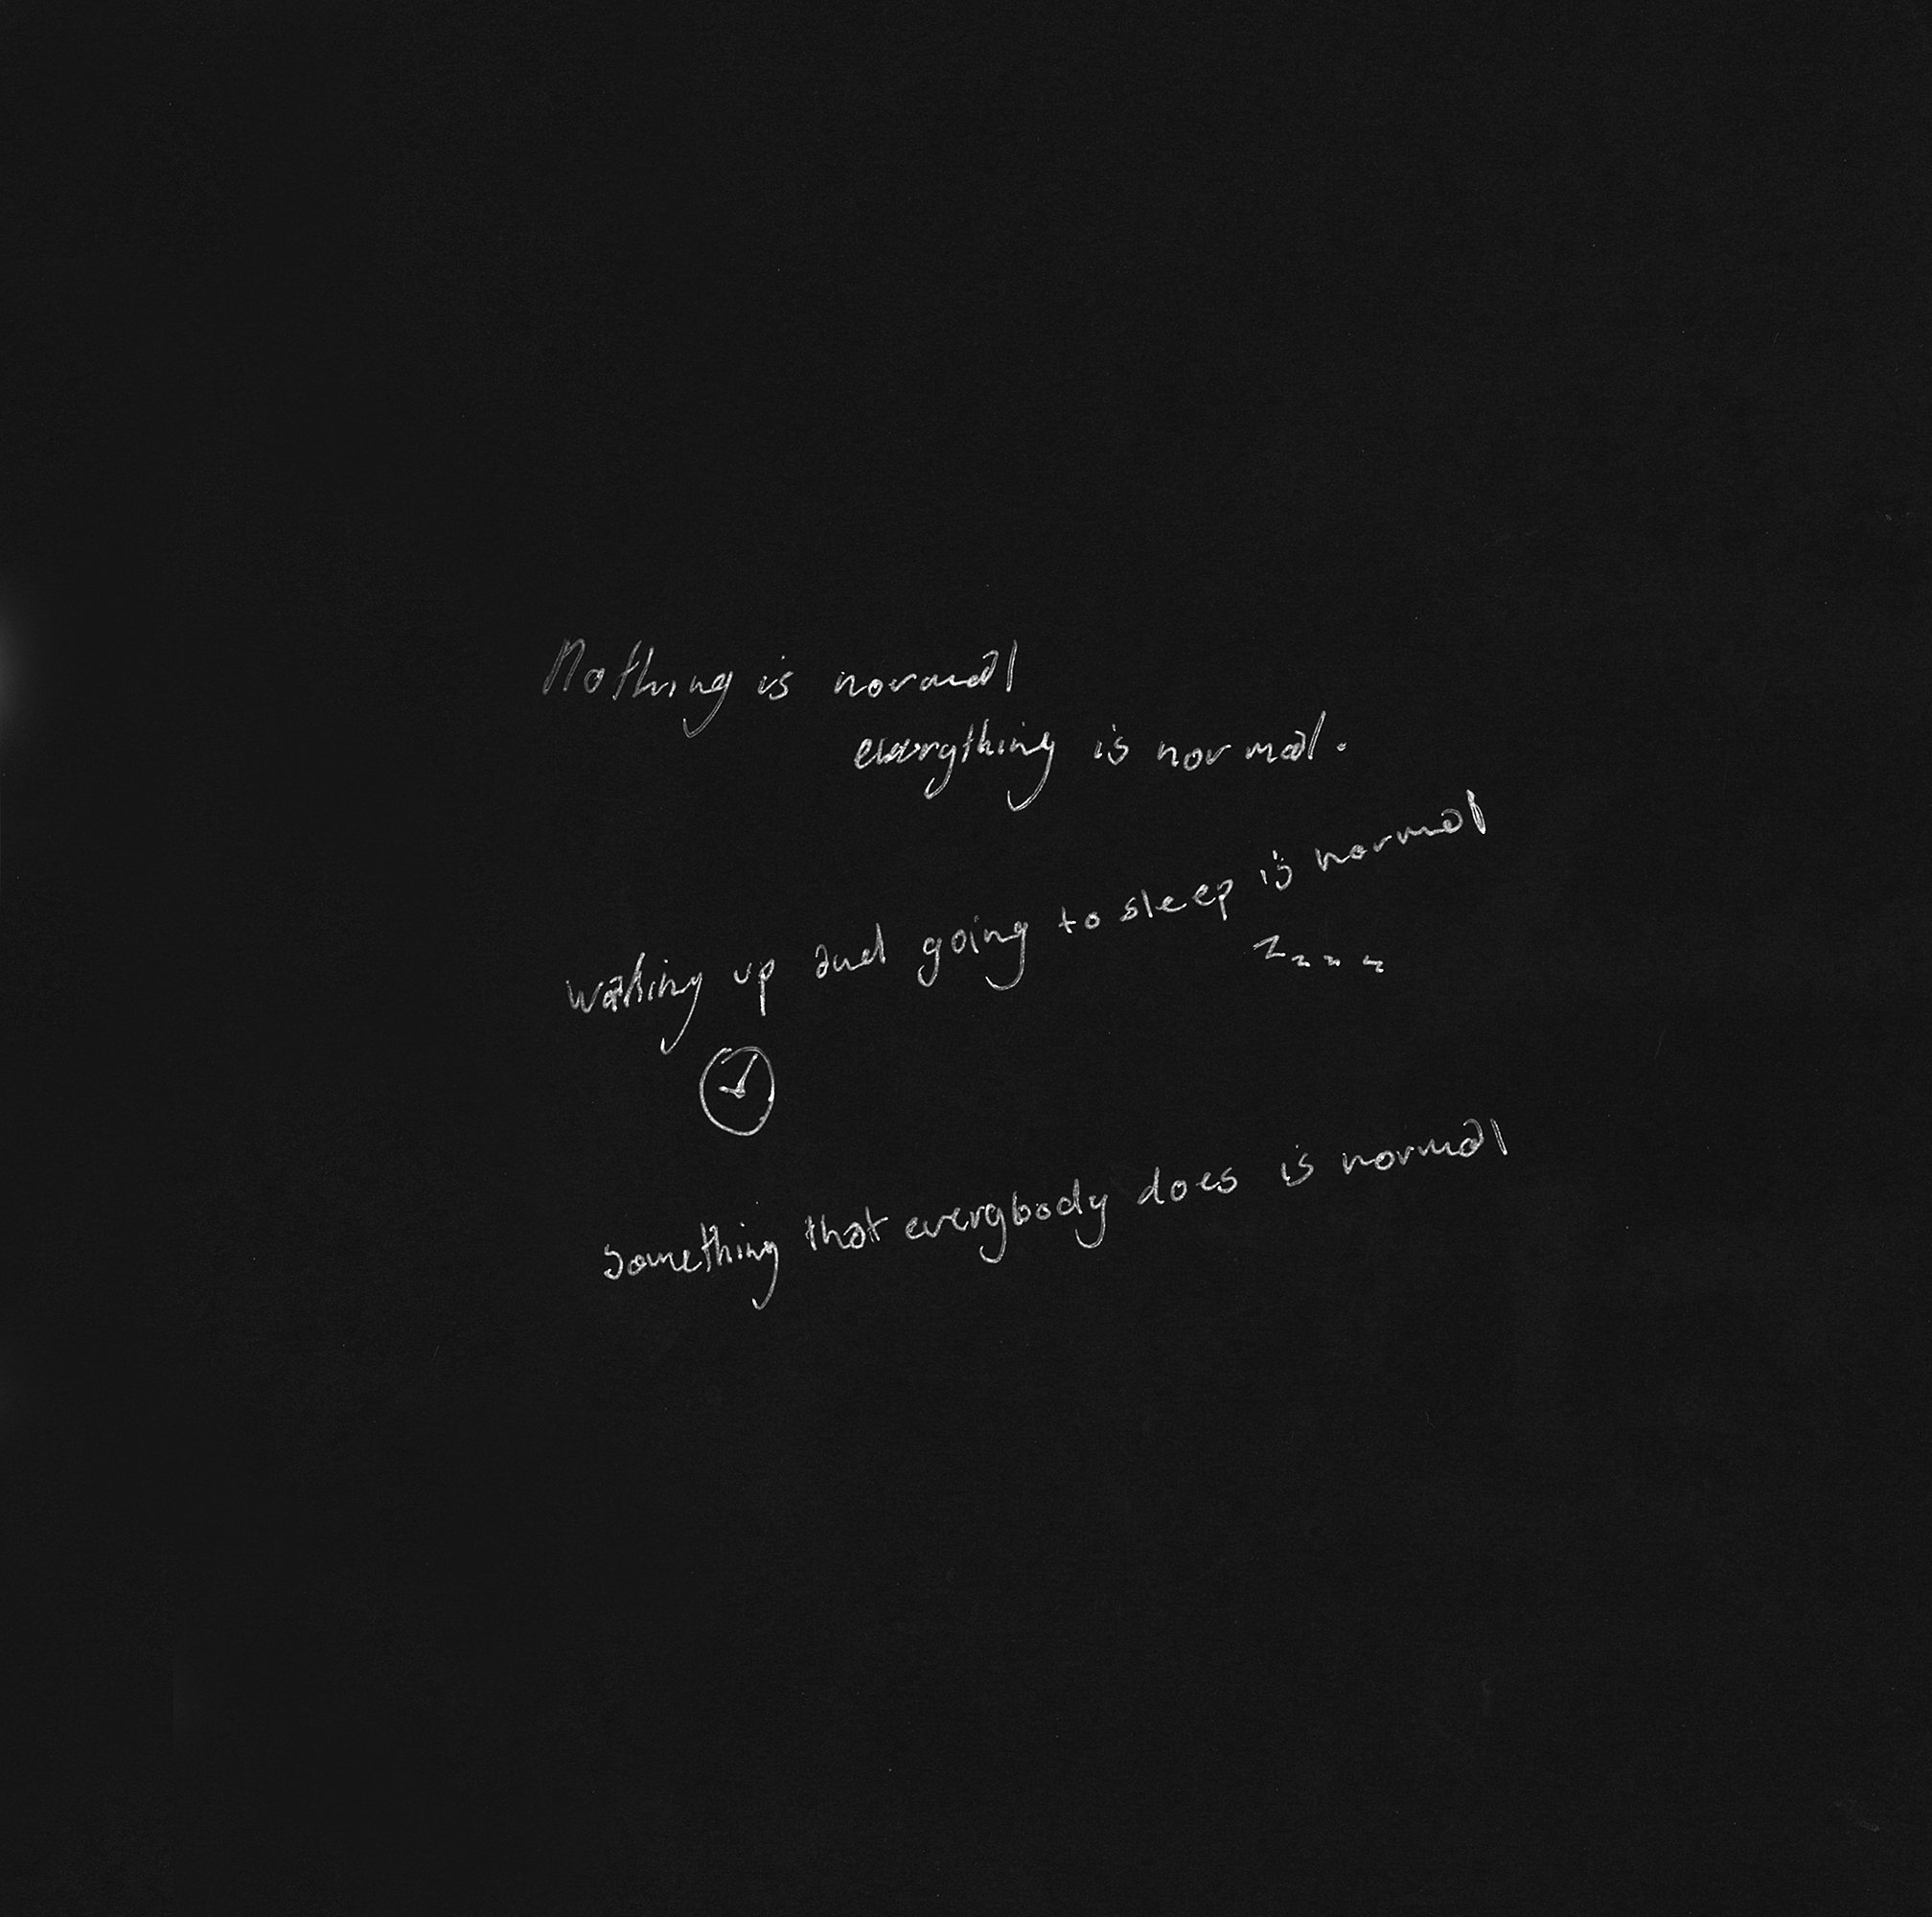 Nothing is normal
everything is normal.
waking up and going to sleep is normal
zzzz
Something that everybody does is normal